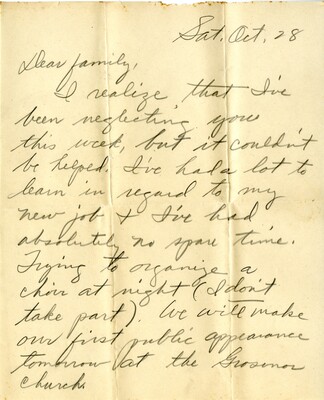 Sat. Oct. 28
Dear family,
I realize that I've
been neglecting you
this week, but it couldn't
be helped. I've had a lot to
learn in regard to my
new job & I've had
absolutely no spare time.
Trying to organize a
choir at night (I don't
take part). We will make
our first public appearance
tomorrow at the Grosvenor
church.